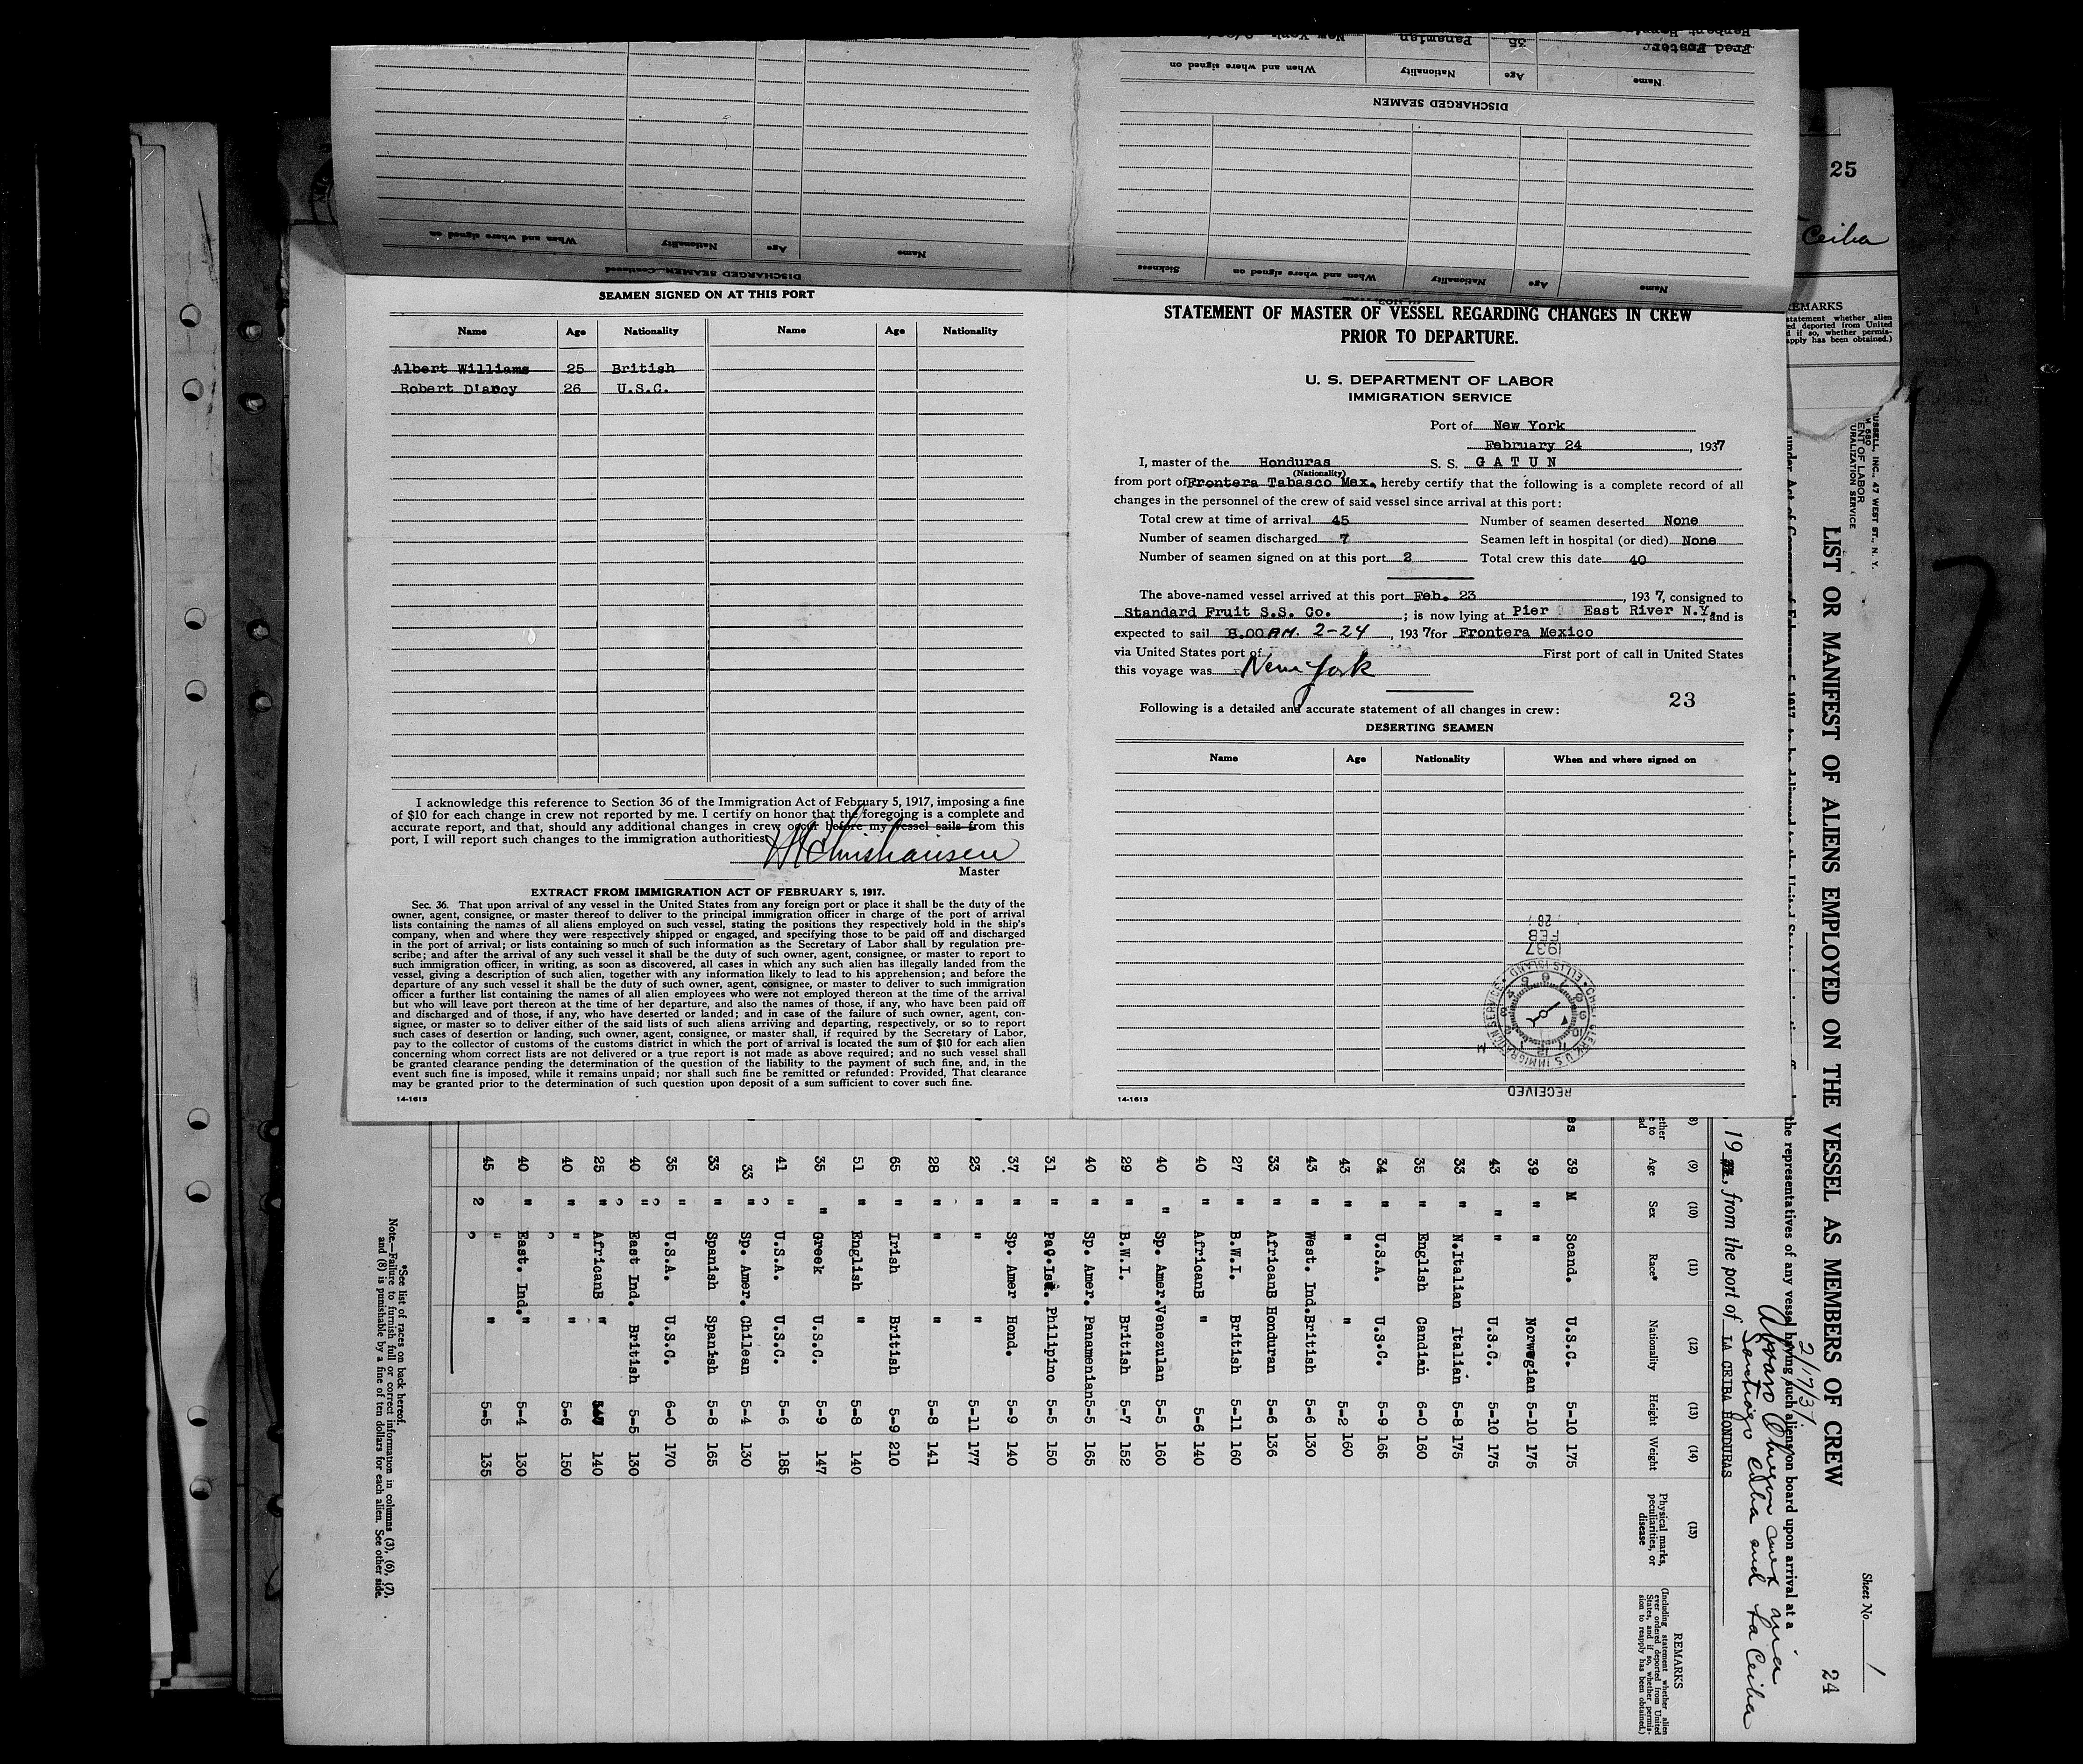 Fred Foster 35 Panamian New York
Name Age Nationality When and where signed on
DISCHARGED SEAMEN
Name Age Nationality When and where signed on Sickness
DISCHARGED SEAMEN—Continued
Name Age Nationality When and where signed on
SEAMEN SIGNED ON AT THIS PORT
Name Age Nationality Name Age Nationality
Albert Williams 25 British
Robert D'arcy 26 U.S.C.
I acknowledge this reference to Section 36 of the Immigration Act of February 5, 1917, imposing a fine
of $10 for each change in crew not reported by me. I certify on honor that the foregoing is a complete and
accurate report, and that, should any additional changes in crew occur before my vessel sails from this
port, I will report such changes to the immigration authorities.
Master
EXTRACT FROM IMMIGRATION ACT OF FEBRUARY 5, 1917.
Sec. 36. That upon arrival of any vessel in the United States from any foreign port or place it shall be the duty of the
owner, agent, consignee, or master thereof to deliver to the principal immigration officer in charge of the port of arrival
lists containing the names of all aliens employed on such vessel, stating the positions they respectively hold in the ship's
company, when and where they were respectively shipped or engaged, and specifying those to be paid off and discharged
in the port of arrival; or lists containing so much of such information as the Secretary of Labor shall by regulation pre-
scribe; and after the arrival of any such vessel it shall be the duty of such owner, agent, consignee, or master to report to
such immigration officer, in writing, as soon as discovered, all cases in which any such alien has illegally landed from the
vessel, giving a description of such alien, together with any information likely to lead to his apprehension; and before the
departure of any such vessel it shall be the duty of such owner, agent, consignee, or master to deliver to such immigration
officer a further list containing the names of all alien employees who were not employed thereon at the time of the arrival
but who will leave port thereon at the time of her departure, and also the names of those, if any, who have been paid off
and discharged and of those, if any, who have deserted or landed; and in case of the failure of such owner, agent, con-
signee, or master so to deliver either of the said lists of such aliens arriving and departing, respectively, or so to report
such cases of desertion or landing, such owner, agent, consignee, or master shall, if required by the Secretary of Labor,
pay to the collector of customs of the customs district in which the port of arrival is located the sum of $10 for each alien
concerning whom correct lists are not delivered or a true report is not made as above required; and no such vessel shall
be granted clearance pending the determination of the question of the liability to the payment of such fine, and, in the
event such fine is imposed, while it remains unpaid; nor shall such fine be remitted or refunded: Provided, That clearance
may be granted prior to the determination of such question upon deposit of a sum sufficient to cover such fine.
14-1613
STATEMENT OF MASTER OF VESSEL REGARDING CHANGES IN CREW
PRIOR TO DEPARTURE.
U. S. DEPARTMENT OF LABOR
IMMIGRATION SERVICE
Port of New York
February 24, 1937
I, master of the Honduras S. S. GATUN
(Nationality)
from port of Frontera Tabasco Mex., hereby certify that the following is a complete record of all
changes in the personnel of the crew of said vessel since arrival at this port:
Total crew at time of arrival 45 Number of seamen deserted None
Number of seamen discharged 7 Seamen left in hospital (or died) None
Number of seamen signed on at this port 2 Total crew this date 40
The above-named vessel arrived at this port Feb. 23, 1937, consigned to
Standard Fruit S.S. Co.; is now lying at Pier East River N.Y., and is
expected to sail 8.00 P.M. 2-24, 1937 for Frontera Mexico
via United States port of First port of call in United States
this voyage was New York
23
Following is a detailed and accurate statement of all changes in crew:
DESERTING SEAMEN
Name Age Nationality When and where signed on
1937
FEB
RECEIVED
14-1613
25
Ceiba
REMARKS
USSELL, INC., 47 WEST ST., N. Y.
ENT OF LABOR
URALIZATION SERVICE
Sheet No. 1
LIST OR MANIFEST OF ALIENS EMPLOYED ON THE VESSEL AS MEMBERS OF CREW 24
the representatives of any vessel having such aliens on board upon arrival at a
2/17/37
Santiago Cuba and La Ceiba
19 , from the port of LA CEIBA HONDURAS
(8) (9) (10) (11) (12) (13) (14) (15)
Age Sex Race* Nationality Height Weight Physical marks, peculiarities, or disease
REMARKS
(Including statement whether alien
ever ordered deported from United
States, and if so, whether permis-
sion to reapply has been obtained.)
39 M Scand. U.S.C. 5-10 175
39 " " Norwegian 5-10 175
43 " " U.S.C. 5-10 175
33 " N.Italian Italian 5-8 175
35 " English Candian 6-0 160
34 " U.S.A. U.S.C. 5-9 165
43 " " " 5-2 160
43 " West. Ind. British 5-6 130
33 " AfricanB Honduran 5-6 136
27 " B.W.I. British 5-11 160
40 " AfricanB " 5-6 140
40 " Sp. Amer. Venezulan 5-5 160
29 " B.W.I. British 5-7 152
40 " Sp. Amer. Panamenian 5-5 165
31 " Pac.Isl. Philipino 5-5 150
37 " Sp. Amer Hond. 5-9 140
23 " " " 5-11 177
28 " " " 5-8 141
65 " Irish British 5-9 210
51 " English " 5-8 140
35 " Greek U.S.C. 5-9 147
41 " U.S.A. U.S.C. 5-6 185
33 " Sp. Amer. Chilean 5-4 130
33 " Spanish Spanish 5-8 165
35 " U.S.A. U.S.C. 6-0 170
40 " East Ind. British 5-5 130
25 " AfricanB " 140
40 " " " 5-6 150
40 " East. Ind. " 5-4 130
45 " " 5-5 135
*See list of races on back hereof.
Note.—Failure to furnish full or correct information in columns (3), (6), (7),
and (8) is punishable by a fine of ten dollars for each alien. See other side.